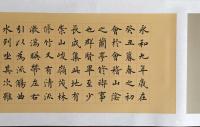 永和九年歲在
癸丑暮春之初
會於會稽山陰
之蘭亭脩禊事
也群賢畢至少
長咸集此地有
崇山峻領茂林
脩竹又有清流
激湍暎帶左右
引以為流觴曲
水列坐其次雖